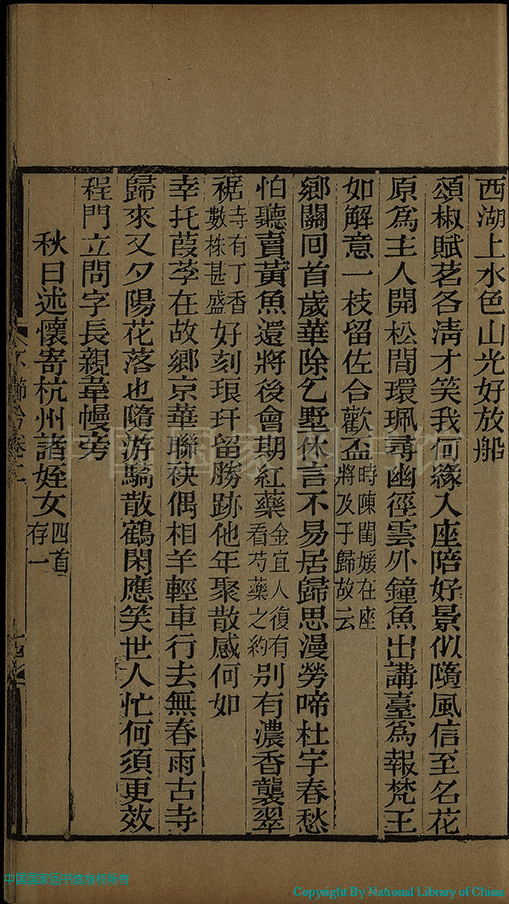 西湖上水色山光好放船
頌椒賦茗各淸才笑我何緣入座陪好景似隨風信至名花
原爲主人開松間環珮尋幽徑雲外鐘魚出講臺爲報梵王
如解意一枝留佐合歡盃時陳閨媛在座將及于歸故云
鄉關回首歲華除乞墅休言不易居歸思漫勞啼杜宇春愁
怕聽賣黃魚還將後會期紅藥金宜人復有看芍藥之約別有濃香襲翠
裾寺有丁香數株甚盛好刻琅玕留勝跡他年聚散感何如
幸托葭莩在故鄉京華聯袂偶相羊輕車行去無春雨古寺
歸來又夕陽花落也隨游騎散鶴閑應笑世人忙何須更效
程門立問字長親韋幔旁
秋日述懷寄杭州諸姪女四首存一
中国国家图书馆
中国国家图书馆版权所有
Copyright By National Library of China